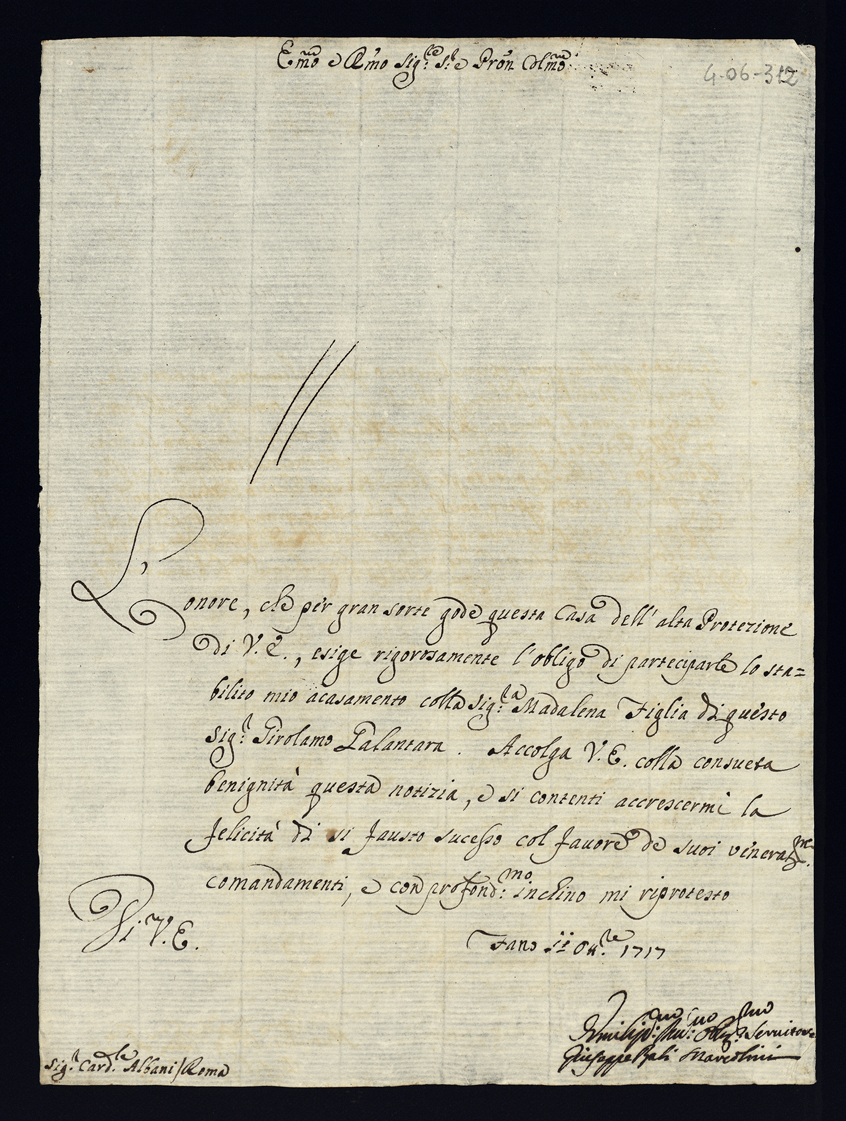 Em̃o e Rm̃o Sig.re S.r e Pron Colmo
4-06-312
L'onore, che per gran sorte gode questa Casa dell'alta Protezione
di V. E., esige rigorosamente l'obligo di parteciparle lo sta=
bilito mio acasamento colla Sig.ra Madalena Figlia di questo
Sig.r Girolamo Palantara. Accolga V. E. colla consueta
benignità questa notizia, e si contenti accrescermi la
felicità di si fausto sucesso col favore de suoi venerat.mi
comandamenti, e con profond.mo inchino mi riprotesto
Di V. E.
Fano 11 Ott.re 1717
Umilis.mo Servitore
Giuseppe Balì Marcolini
Sig.r Card.le Albani / Roma